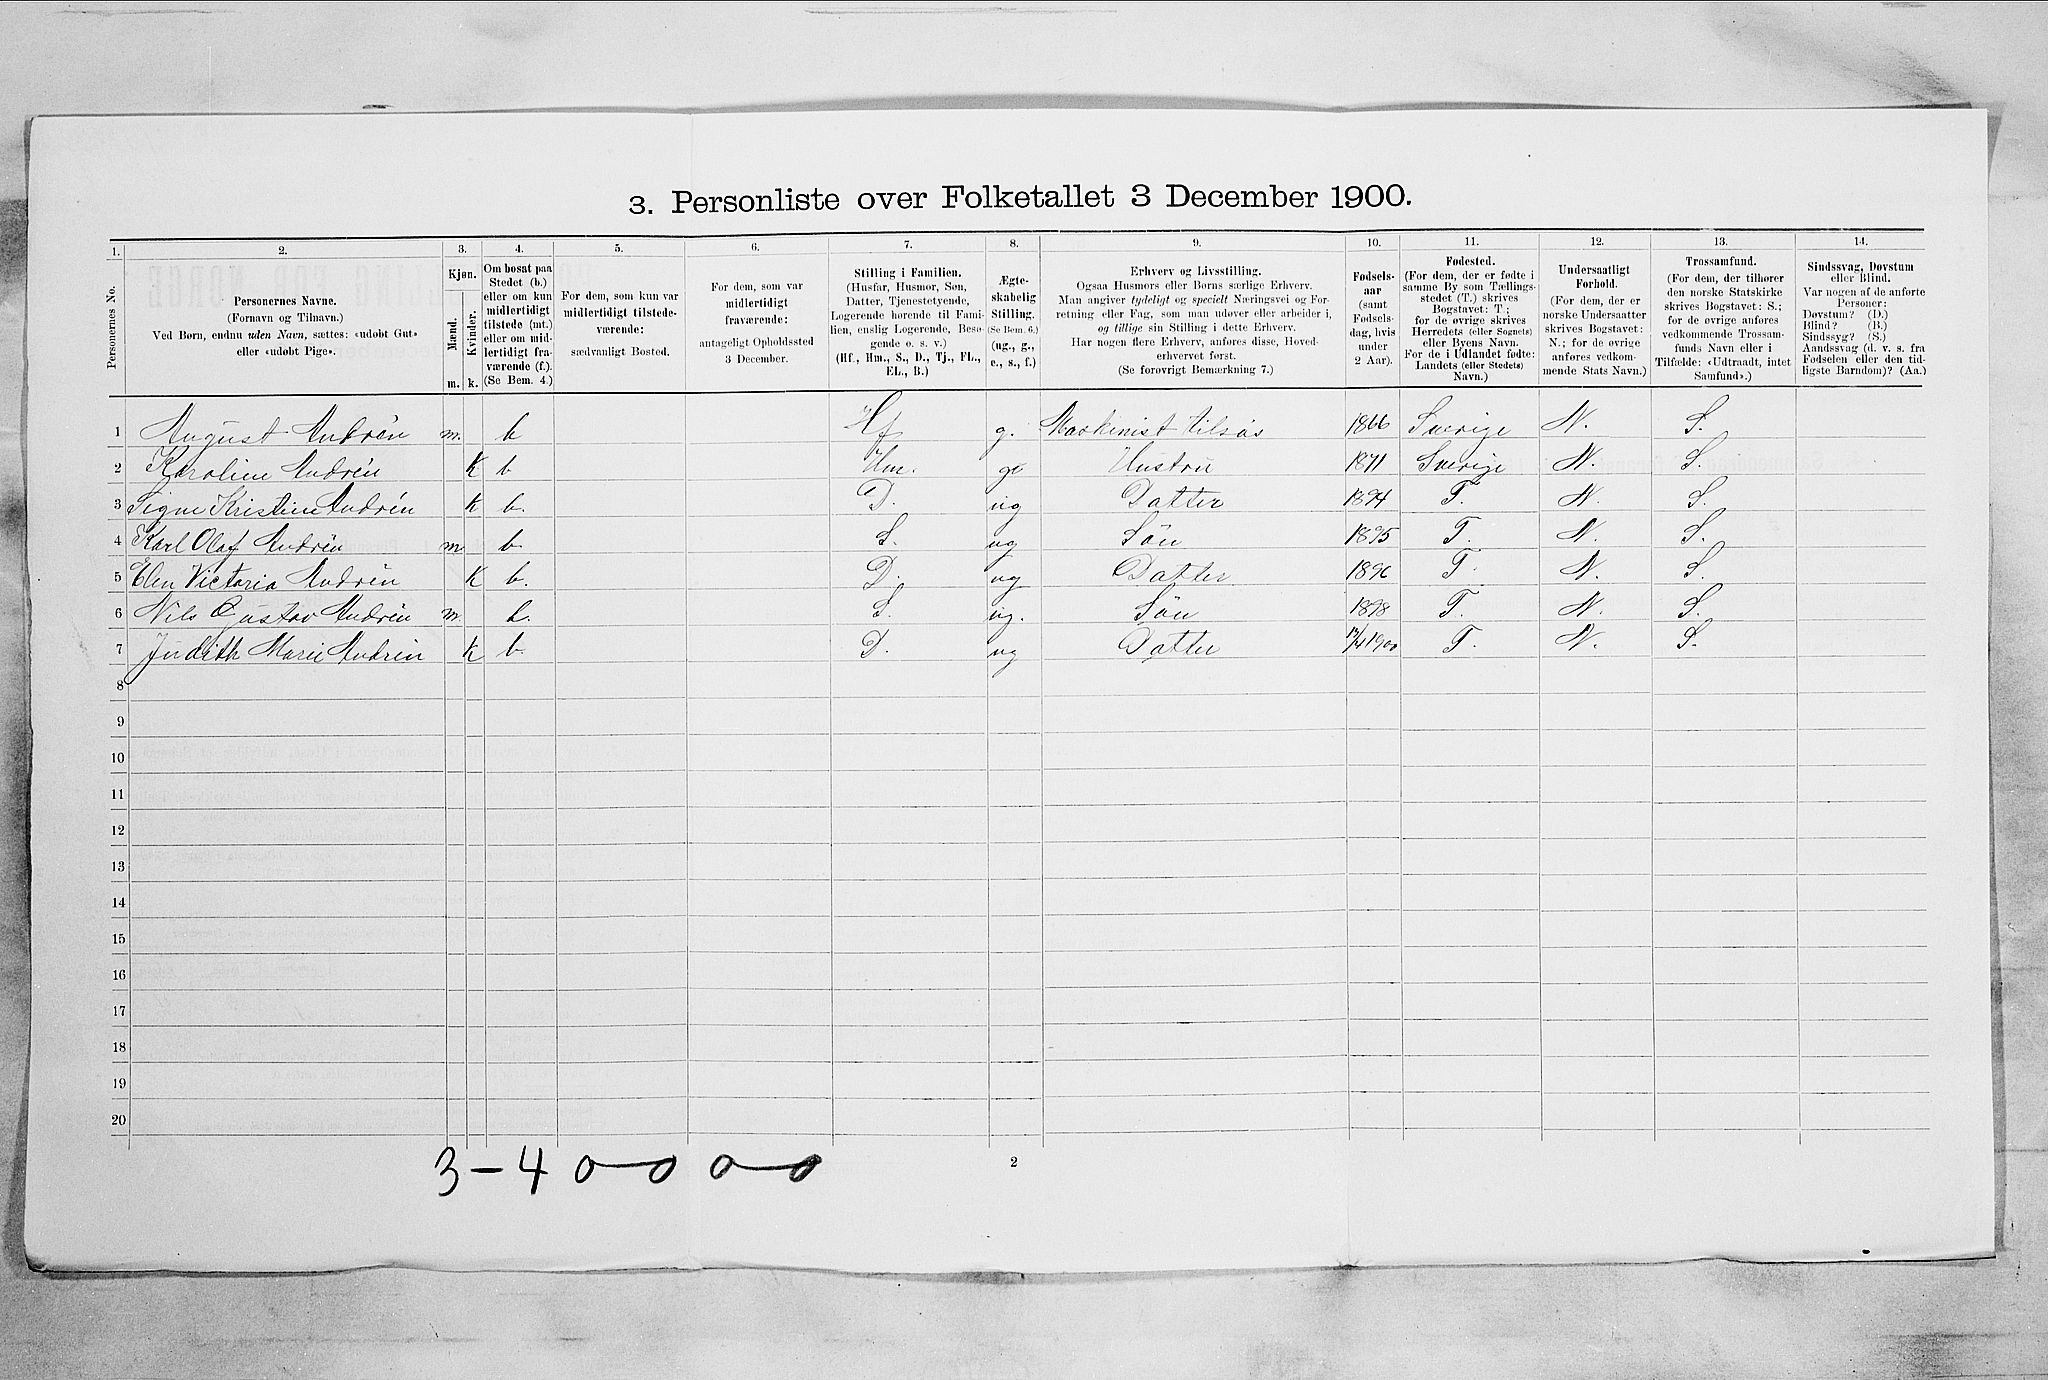 3. Personliste over Folketallet 3 December 1900.
1. 2. 3. 4. 5. 6. 7. 8. 9. 10. 11. 12. 13. 14.
Personernes No.
Personernes Navne.
(Fornavn og Tilnavn.)
Ved Børn, endnu uden Navn, sættes: «udøbt Gut»
eller «udøbt Pige».
Kjøn.
Mænd.
Kvinder.
m. k.
Om bosat paa
Stedet (b.)
eller om kun
midlertidigt
tilstede (mt.)
eller om mid-
lertidigt fra-
værende (f.).
(Se Bem. 4.)
For dem, som kun var
midlertidigt tilstede-
værende:
sædvanligt Bosted.
For dem, som var
midlertidigt
fraværende:
antageligt Opholdssted
3 December.
Stilling i Familien.
(Husfar, Husmor, Søn,
Datter, Tjenestetyende,
Logerende hørende til Fami-
lien, enslig Logerende, Besø-
gende o. s. v.)
(Hf., Hm., S., D., Tj., FL.,
EL., B.)
Ægte-
skabelig
Stilling.
(Se Bem. 6.)
(ug., g.,
e., s., f.)
Erhverv og Livsstilling.
Ogsaa Husmors eller Børns særlige Erhverv.
Man angiver tydeligt og specielt Næringsvei og For-
retning eller Fag, som man udøver eller arbeider i,
og tillige sin Stilling i dette Erhverv.
Har nogen flere Erhverv, anføres disse, Hoved-
erhvervet først.
(Se forøvrigt Bemærkning 7.)
Fødsels-
aar
(samt
Fødsels-
dag, hvis
under
2 Aar).
Fødested.
(For dem, der er fødte i
samme By som Tællings-
stedet (T.) skrives
Bogstavet: T.;
for de øvrige skrives
Herredets (eller Sognets)
eller Byens Navn.
For de i Udlandet fødte:
Landets (eller Stedets)
Navn.)
Undersaatligt
Forhold.
(For dem, der er
norske Undersaatter
skrives Bogstavet:
N.; for de øvrige
anføres vedkom-
mende Stats Navn.)
Trossamfund.
(For dem, der tilhører
den norske Statskirke
skrives Bogstavet: S.;
for de øvrige anføres
vedkommende Trossam-
funds Navn eller i
Tilfælde: «Udtraadt, intet
Samfund».)
Sindssvag, Døvstum
eller Blind.
Var nogen af de anførte
Personer:
Døvstum? (D.)
Blind? (B.)
Sindssyg? (S.)
Aandssvag (d. v. s. fra
Fødselen eller den tid-
ligste Barndom)? (Aa.)
1 August Andrén m. b Hf g. Maskinist 1866 Sverige N. S.
2 Karoline Andrén K b Hm. g Hustru 1871 Sverige N. S.
3 Signe Kristine Andrén K b. D. ug Datter 1894 T. N. S.
4 Karl Olaf Andrén m b. S. ug Søn 1895 T. N. S.
5 Elen Victoria Andrén K b. D. ug Datter 1896 T. N. S.
6 Nils Gustav Andrén m. b. S. ug. Søn 1898 T. N. S.
7 Judith Marie Andrén K b. D. ug Datter 1900 T. N. S.
8
9
10
11
12
13
14
15
16
17
18
19
20
3-4 0 0 0 0
2